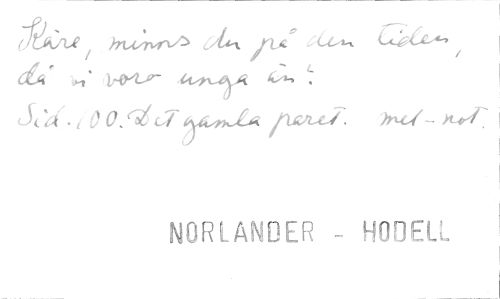 Käre, minns du på den tiden,
då vi voro unga än?
Sid. 100. Det gamla paret. mel-not.
NORLANDER - HODELL